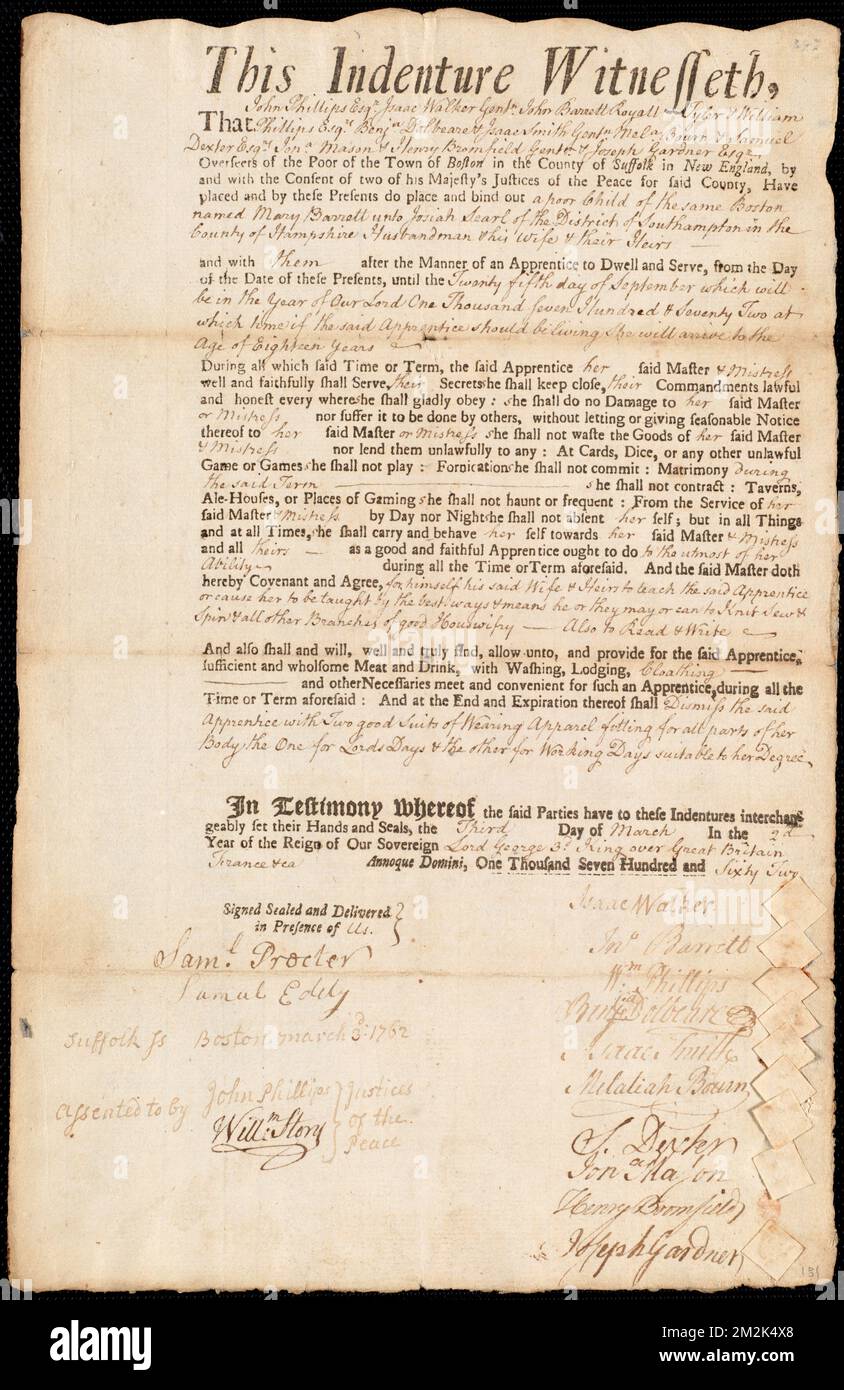 This Indenture Witneſſeth,
John Phillips Esqr Isaac Walker Gentn John Barrett Royall Tyler & William
That Phillips Esqrs Benjn Dolbeare & Isaac Smith Gentn Mela Bourn & Samuel
Dexter Esqrs Jona Mason & Henry Bromfield Gentn & Joseph Gardner Esqr
Overſeers of the Poor of the Town of Boſton in the County of Suffolk in New England, by
and with the Conſent of two of his Majeſty's Juſtices of the Peace for ſaid County, Have
placed and by theſe Preſents do place and bind out a poor Child of the same Boston
named Mary Barrett unto Josiah Searl of the District of Southampton in the
County of Hampshire Husbandman & his Wife & their Heirs
and with them after the Manner of an Apprentice to Dwell and Serve, from the Day
of the Date of theſe Preſents, until the Twenty fifth day of September which will
be in the Year of Our Lord One Thousand Seven Hundred & Seventy Two at
which time if the said Apprentice should be living She will arrive to the
Age of Eighteen Years
During all which ſaid Time or Term, the ſaid Apprentice her ſaid Maſter & Mistress
well and faithfully ſhall Serve, their Secrets she ſhall keep cloſe, their Commandments lawful
and honeſt every where she ſhall gladly obey : she ſhall do no Damage to her ſaid Maſter
or Mistress nor ſuffer it to be done by others, without letting or giving ſeaſonable Notice
thereof to her ſaid Maſter or Mistress she ſhall not waſte the Goods of her ſaid Maſter
& Mistress nor lend them unlawfully to any : At Cards, Dice, or any other unlawful
Game or Games she ſhall not play : Fornication she ſhall not commit : Matrimony during
the said Term she ſhall not contract : Taverns,
Ale-Houſes, or Places of Gaming she ſhall not haunt or frequent : From the Service of her
ſaid Maſter & Mistress by Day nor Night she ſhall not abſent her ſelf; but in all Things
and at all Times, she ſhall carry and behave her ſelf towards her ſaid Maſter & Mistress
and all theirs as a good and faithful Apprentice ought to do to the utmost of her
Ability during all the Time or Term aforeſaid. And the ſaid Maſter doth
hereby Covenant and Agree, for himself his said Wife & Heirs to teach the said Apprentice
or cause her to be taught by the best ways & means he or they may or can to Knit Sew &
Spin & all other Branches of good Houswifry Also to Read & Write
And alſo ſhall and will, well and truly find, allow unto, and provide for the ſaid Apprentice,
ſufficient and wholſome Meat and Drink, with Waſhing, Lodging, Cloathing
and other Neceſſaries meet and convenient for ſuch an Apprentice, during all the
Time or Term aforeſaid : And at the End and Expiration thereof ſhall Dismiss the said
Apprentice with Two good Suits of Wearing Apparel fitting for all parts of her
Body, the One for Lords Days & the other for Working Days suitable to her Degree
In Teſtimony whereof the ſaid Parties have to theſe Indentures interchan-
geably ſet their Hands and Seals, the Third Day of March In the 2d
Year of the Reign of Our Sovereign Lord George 3d King over Great Britain
France &ca Annoque Domini, One Thouſand Seven Hundred and Sixty Two
Signed Sealed and Delivered
in Preſence of Us.
Saml Procter
Samuel Eddy
Suffolk ss Boston march 3d: 1762
Assented to by John Phillips Justices
Willm Story of the
Peace
Isaac Walker
Jno Barrett
Wm Phillips
Benja Dolbeare
Isaac Smith
Melatiah Bourn
S. Dexter
Jona Mason
Henry Bromfield
Joseph Gardner
151
alamy
Image ID: 2M2K4X8
www.alamy.com